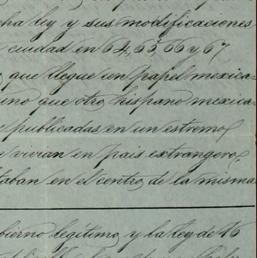 cha ley y sus modificaciones
ciudad en 64, 65, 66 y 67
que llegue un papel mexica-
uno que otro hispano mexica-
publicadas en un estremo
vivian en país extrangero,
taban en el centro de la misma
bierno legítimo, y la ley de 16